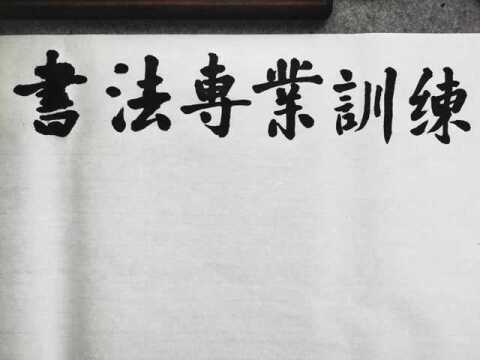 書法専業訓練